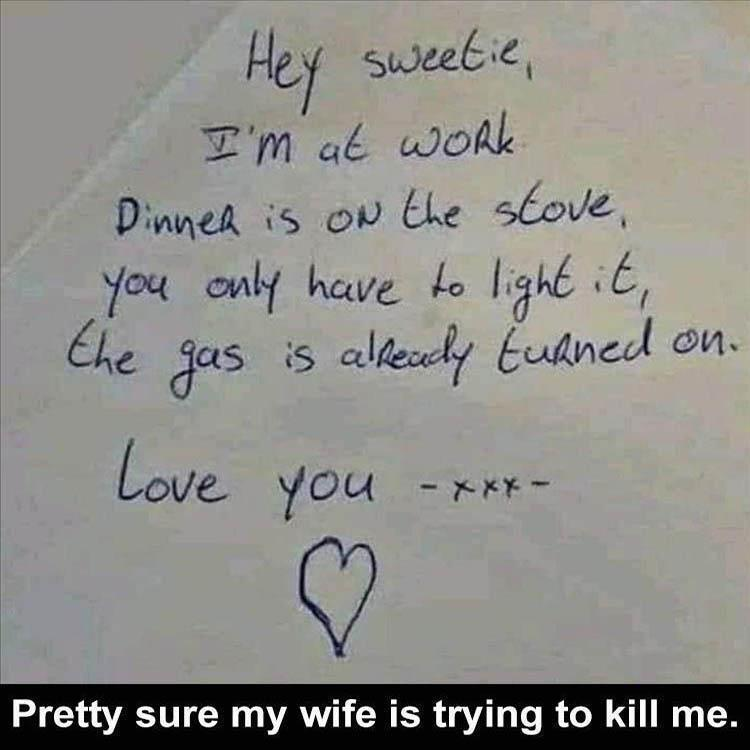 Hey sweetie,
I'm at work
Dinner is on the stove,
you only have to light it,
the gas is already turned on.
Love you -xxx-
Pretty sure my wife is trying to kill me.